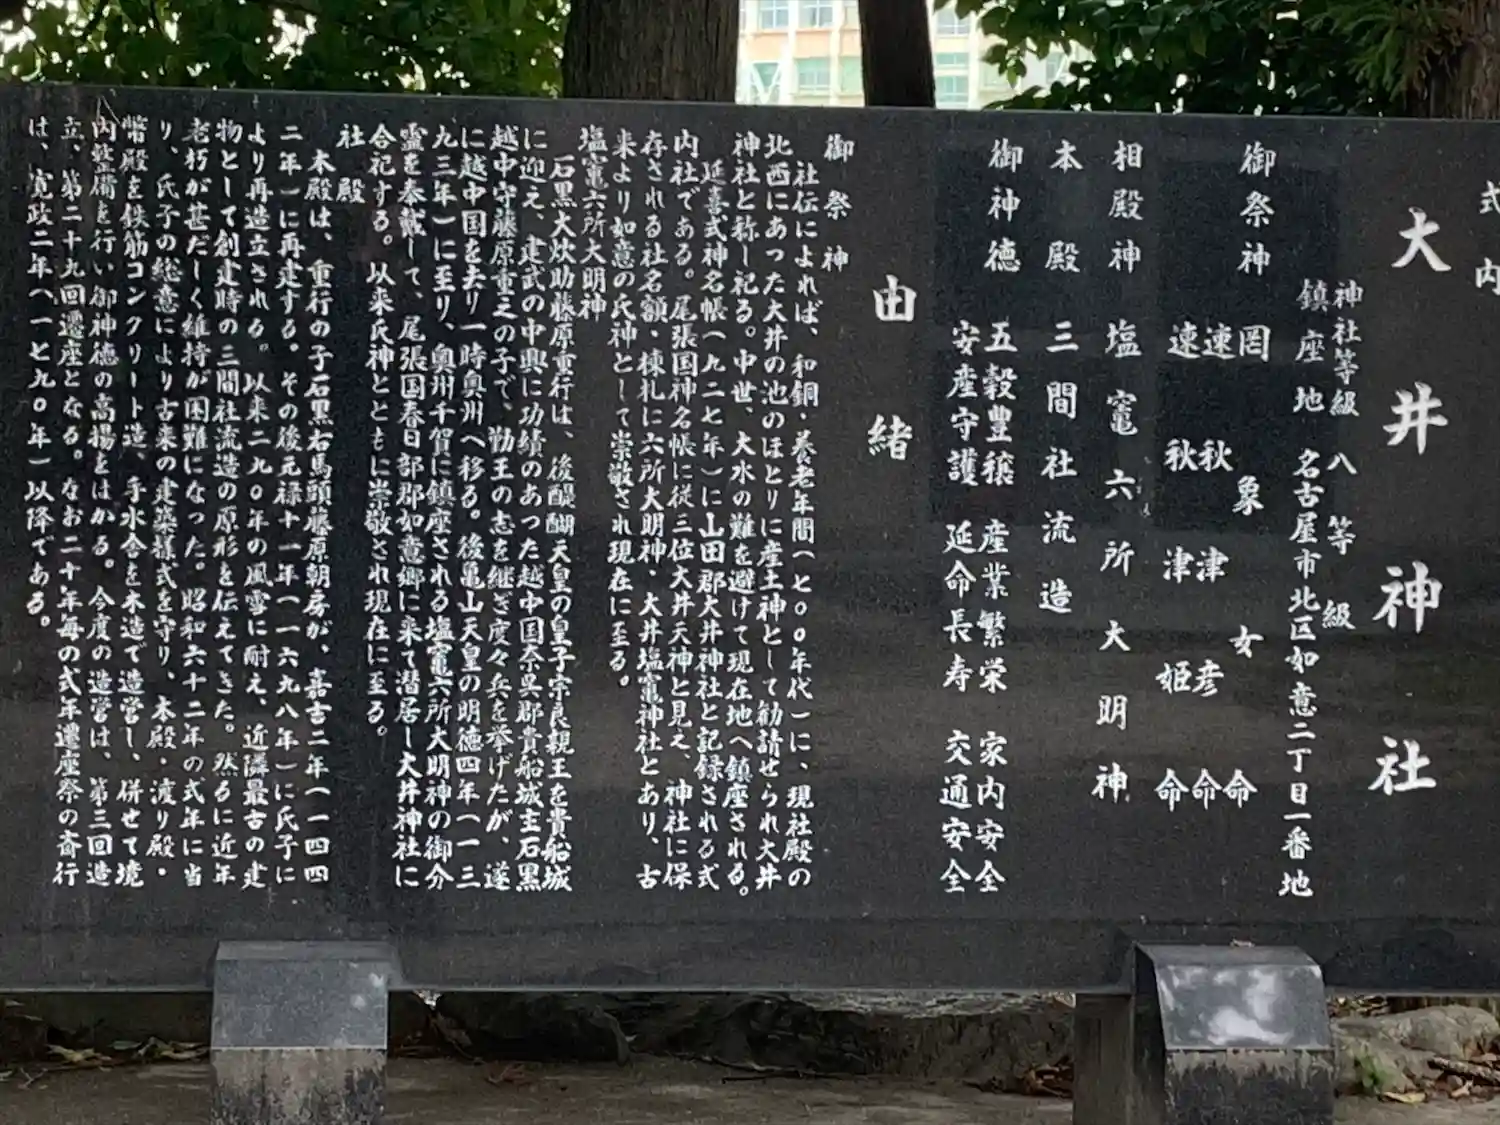 式内
大井神社
神社等級 八等級
鎮座地 名古屋市北区如意二丁目一番地
御祭神 罔象女命
速秋津彦命
速秋津姫命
相殿神 塩竈六所大明神
本殿 三間社流造
御神徳 五穀豊穣 産業繁栄 家内安全
安産守護 延命長寿 交通安全
由緒
御祭神
社伝によれば、和銅・養老年間(七〇〇年代)に、現社殿の
北西にあった大井の池のほとりに産土神として勧請せられ大井
神社と称し祀る。中世、大水の難を避けて現在地へ鎮座される。
延喜式神名帳(九二七年)に山田郡大井神社と記録される式
内社である。尾張国神名帳に従三位大井天神と見え、神社に保
存される社名額・棟札に六所大明神・大井塩竈神社とあり、古
来より如意の氏神として崇敬され現在に至る。
塩竈六所大明神
石黒大炊助藤原重行は、後醍醐天皇の皇子宗良親王を貴船城
に迎え、建武の中興に功績のあった越中国奈呉郡貴船城主石黒
越中守藤原重之の子で、勤王の志を継ぎ度々兵を挙げたが、遂
に越中国を去り一時奥州へ移る。後亀山天皇の明徳四年(一三
九三年)に至り、奥州千賀に鎮座される塩竈六所大明神の御分
霊を奉戴して、尾張国春日部郡如意郷に来て潜居し大井神社に
合祀する。以来氏神とともに崇敬され現在に至る。
社殿
本殿は、重行の子石黒右馬頭藤原朝房が、嘉吉二年(一四四
二年)に再建する。その後元禄十一年(一六九八年)に氏子に
より再造立される。以来二九〇年の風雪に耐え、近隣最古の建
物として創建時の三間社流造の原形を伝えてきた。然るに近年
老朽が甚だしく維持が困難になった。昭和六十二年の式年に当
り、氏子の総意により古来の建築様式を守り、本殿・渡り殿・
幣殿を鉄筋コンクリート造、手水舎を木造で造営し、併せて境
内整備を行い御神徳の高揚をはかる。今度の造営は、第三回造
立、第二十九回遷座となる。なお二十年毎の式年遷座祭の斎行
は、寛政二年(一七九〇年)以降である。